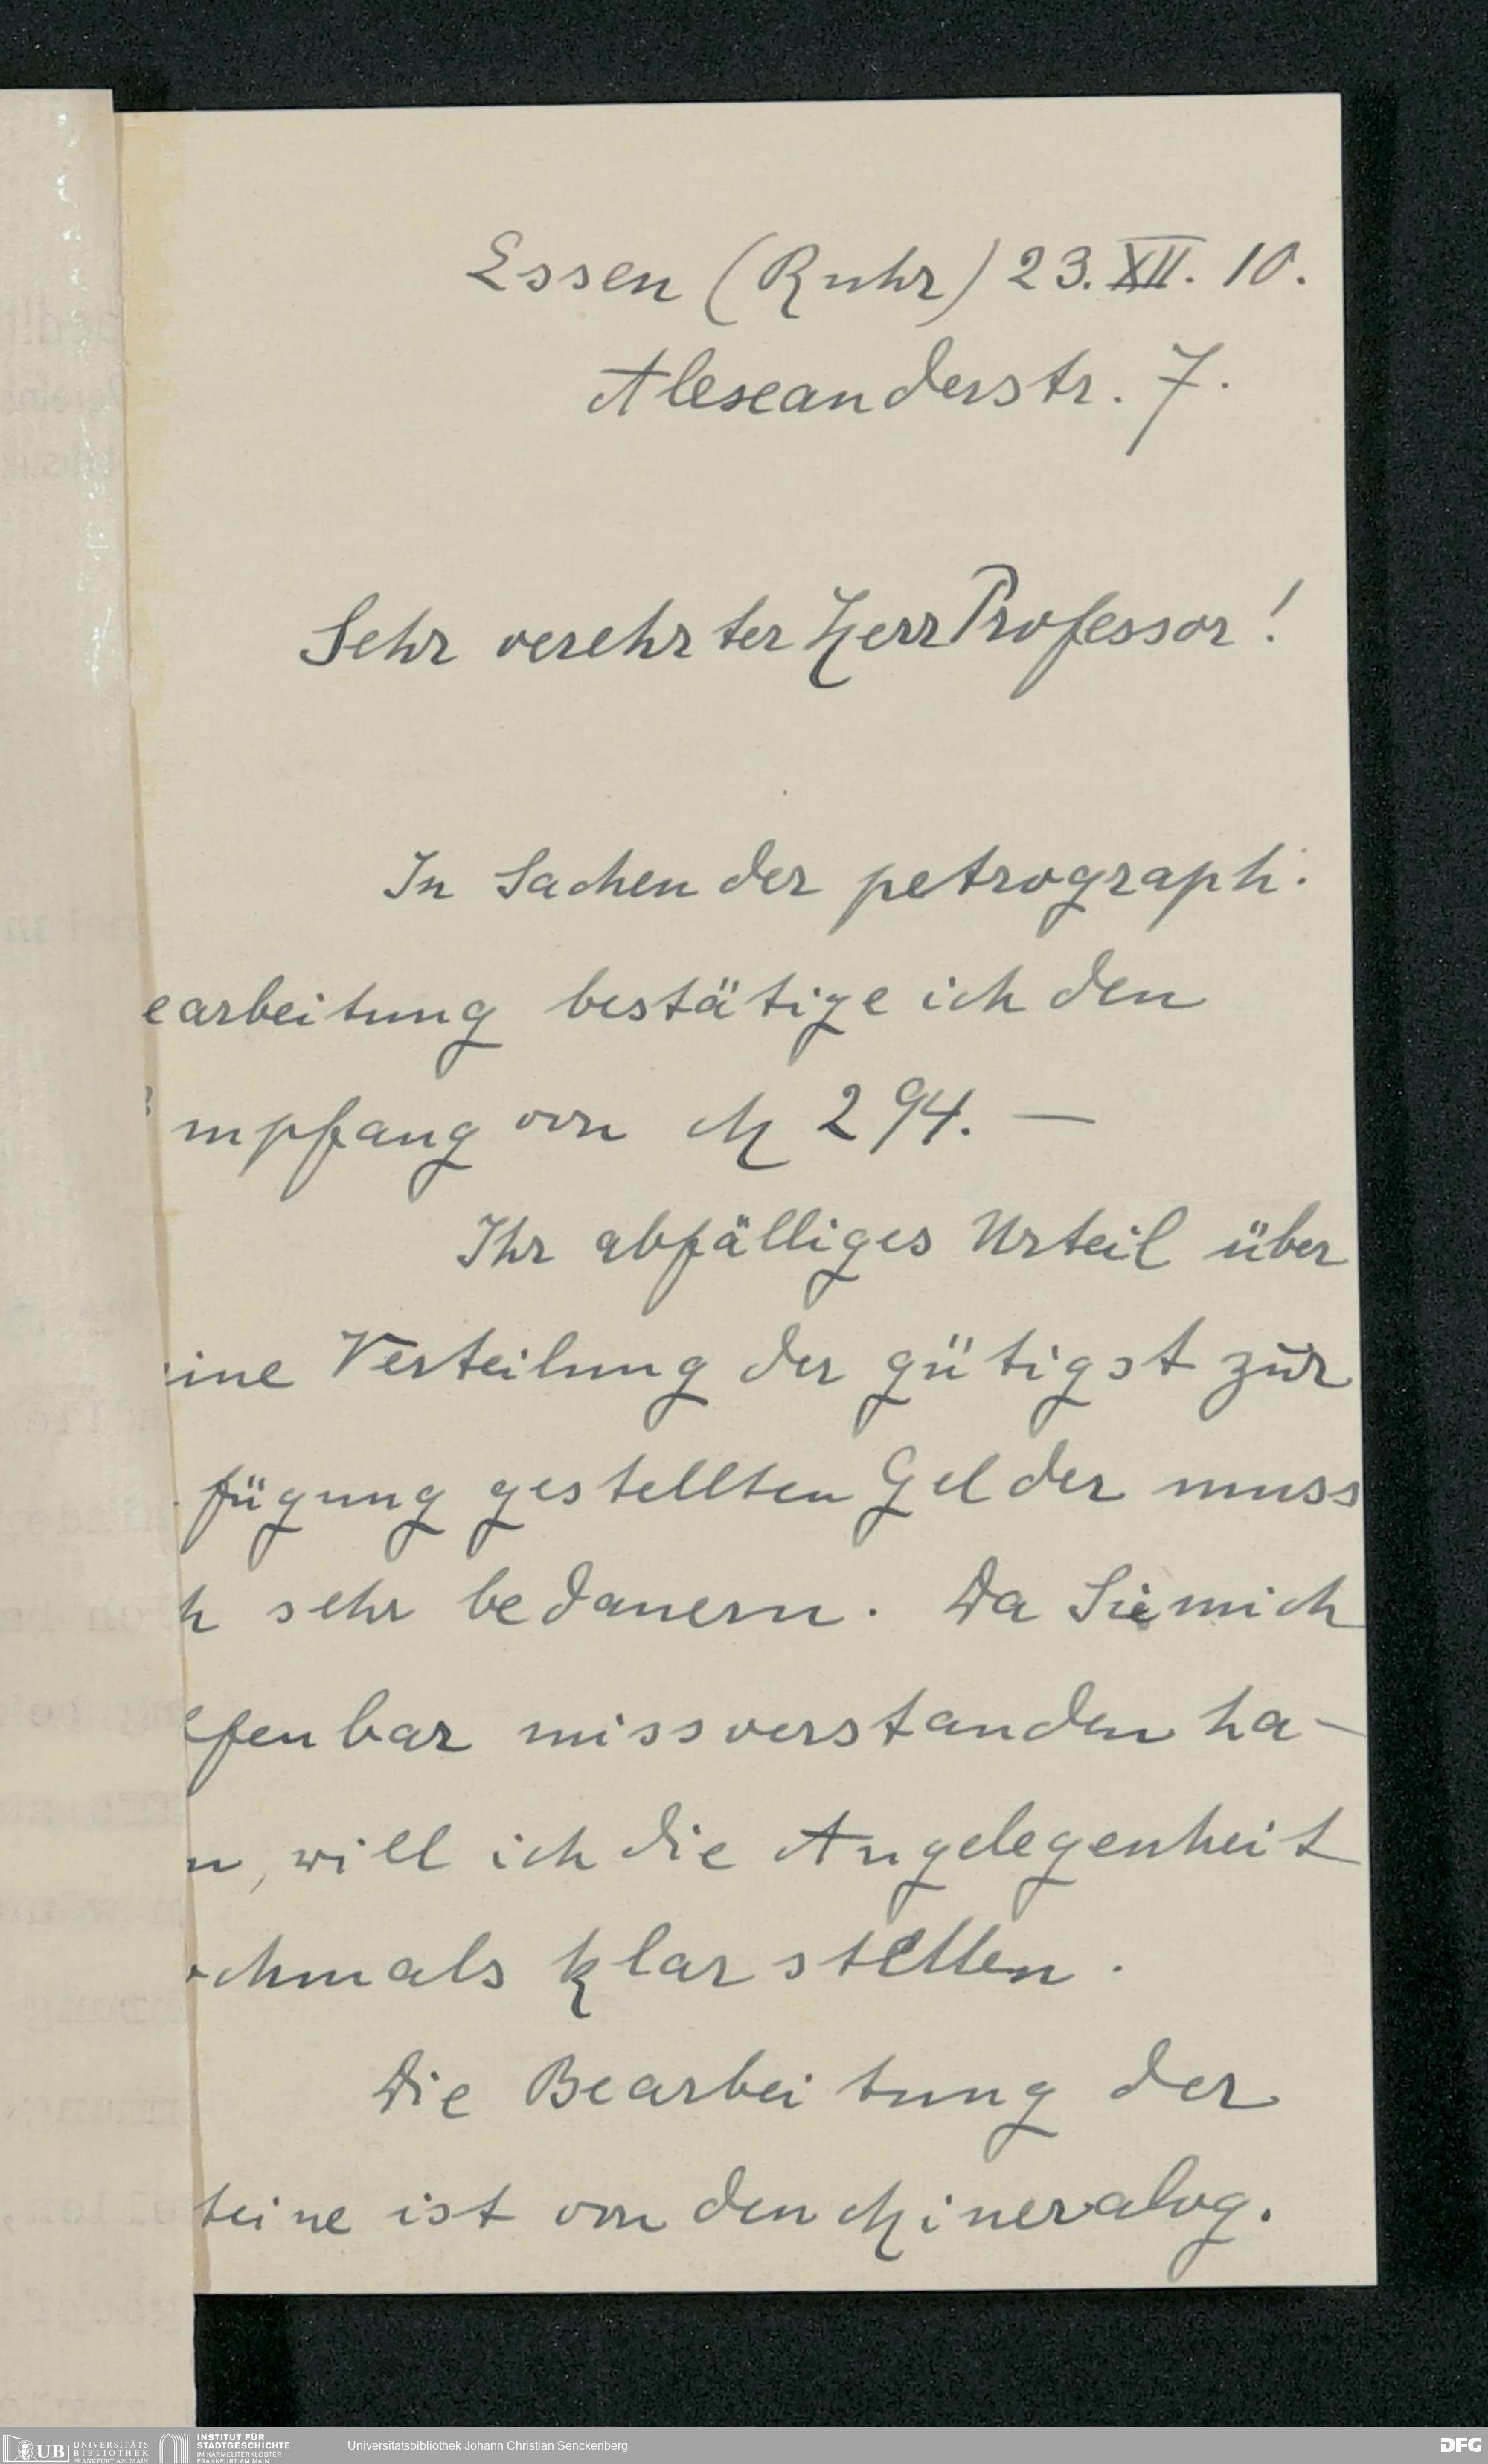 Essen (Ruhr) 23. XII. 10.
Alexanderstr. 7.
Sehr verehrter Herr Professor!
In Sachen der petrograph.
earbeitung bestätige ich den
mpfang von M 294. —
Ihr abfälliges Urteil über
ine Verteilung der gütigst zur
fügung gestellten Gelder muss
h sehr bedauern. Da Sie mich
ffenbar missverstanden ha-
n, will ich die Angelegenheit
chmals klar stellen.
Die Bearbeitung der
teine ist von den Mineralog.
UB UNIVERSITÄTS BIBLIOTHEK FRANKFURT AM MAIN
INSTITUT FÜR STADTGESCHICHTE IM KARMELITERKLOSTER FRANKFURT AM MAIN
Universitätsbibliothek Johann Christian Senckenberg
DFG